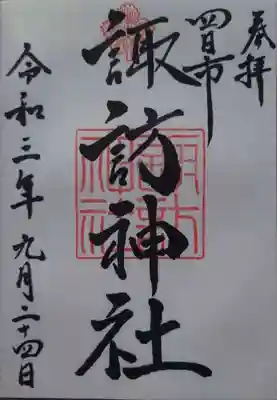 奉拝
四日市
諏訪神社
令和三年九月二十四日
諏訪神社